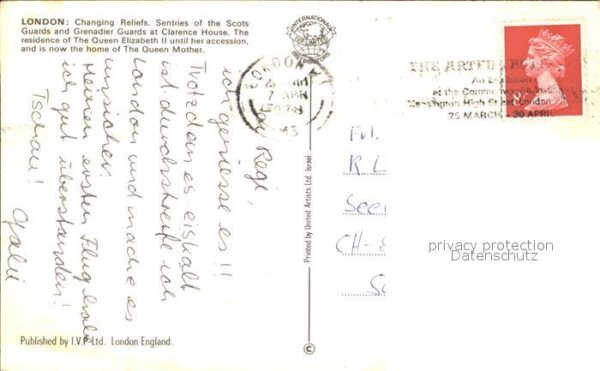 LONDON: Changing Reliefs. Sentries of the Scots
Guards and Grenadier Guards at Clarence House. The
residence of The Queen Elizabeth II until her accession,
and is now the home of The Queen Mother.
INTERNATIONAL
LONDON
APR
1978
THE ARTFUL
An Exhibition
at the Commonwealth
Kensington High Street London
25 MARCH 30 APRIL
Regi,
ich geniesse es!!
Trotzdem es eiskalt
ist durchstreife ich
London und mache es
unsicher.
Meinen ersten Flug habe
ich gut überstanden!
Tschau!
Printed by United Artists Ltd. Israel.
Frl.
R L
See
CH-
privacy protection
Datenschutz
Published by I.V.P Ltd. London England.
©